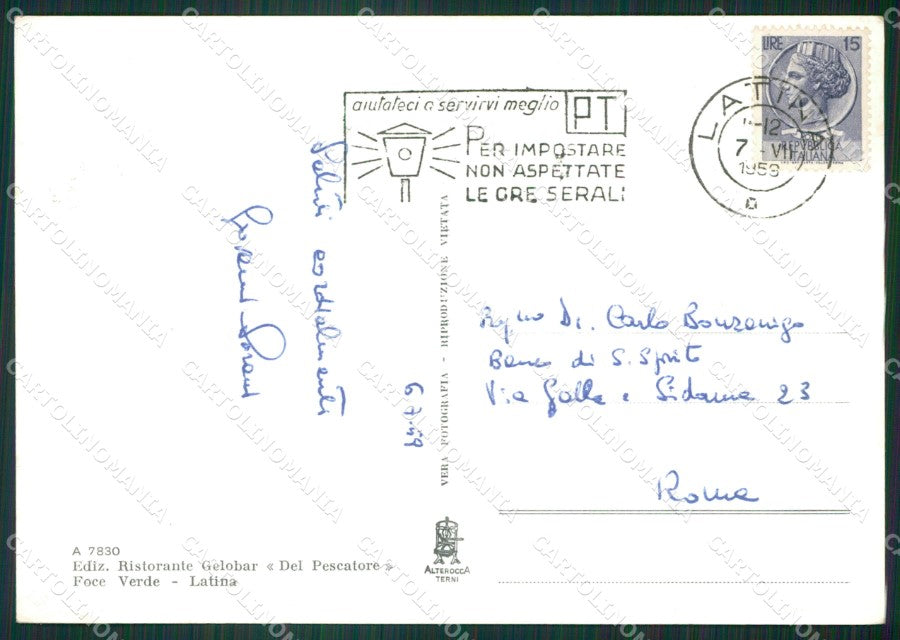 LIRE 15
REPVBBLICA
ITALIANA
aiutateci a servirvi meglio
PT
PER IMPOSTARE
NON ASPETTATE
LE ORE SERALI
LATINA
-12
7 VII
1959
Saluti cordialmenti
6.7.59
VERA FOTOGRAFIA - RIPRODUZIONE VIETATA
Carlo Bonzanigo
Banco di S. Spirito
Via Galla e Sidama 23
Roma
A 7830
Ediz. Ristorante Gelobar « Del Pescatore »
Foce Verde - Latina
ALTEROCCA
TERNI
CARTOLINOMANIA